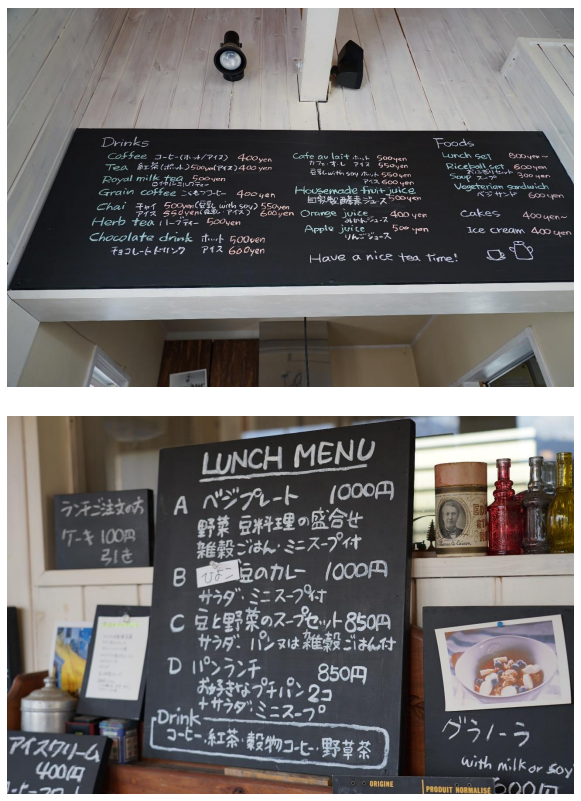 Drinks
Coffee コーヒー(ホット/アイス) 400yen
Tea 紅茶(ポット)500yen(アイス)400yen
Royal milk tea 500yen
ロイヤルミルクティー
Grain coffee こくもつコーヒー 400yen
Chai チャイ 500yen(豆乳 with soy)550yen
アイス 550yen(豆乳・アイス) 600yen
Herb tea ハーブティー 500yen
Chocolate drink ホット 500yen
チョコレートドリンク アイス 600yen
Cafe au lait ホット 500yen
カフェ・オ・レ アイス 550yen
豆乳 with soy ホット 550yen
アイス 600yen
Housemade fruit juice
自家製酵素ジュース 500yen
Orange juice 400yen
みかんジュース
Apple juice 500yen
りんごジュース
Have a nice tea time!
Foods
Lunch set 800yen~
Riceball set 600yen
おにぎりセット
Soup スープ 300yen
Vegeterian sandwich
ベジサンド 600yen
Cakes 400yen~
Ice cream 400yen
LUNCH MENU
A ベジプレート 1000円
野菜 豆料理の盛合せ
雑穀ごはん・ミニスープ付
B ひよこ豆のカレー 1000円
サラダ・ミニスープ付
C 豆と野菜のスープセット 850円
サラダ・パン又は雑穀ごはん付
D パンランチ 850円
お好きなプチパン2コ
+サラダ・ミニスープ
Drink
コーヒー・紅茶・穀物コーヒー・野草茶
ランチご注文の方
ケーキ 100円
引き
アイスクリーム
400円
グラノーラ
with milk or soy
600円
ORIGINE
PRODUIT NORMALISÉ